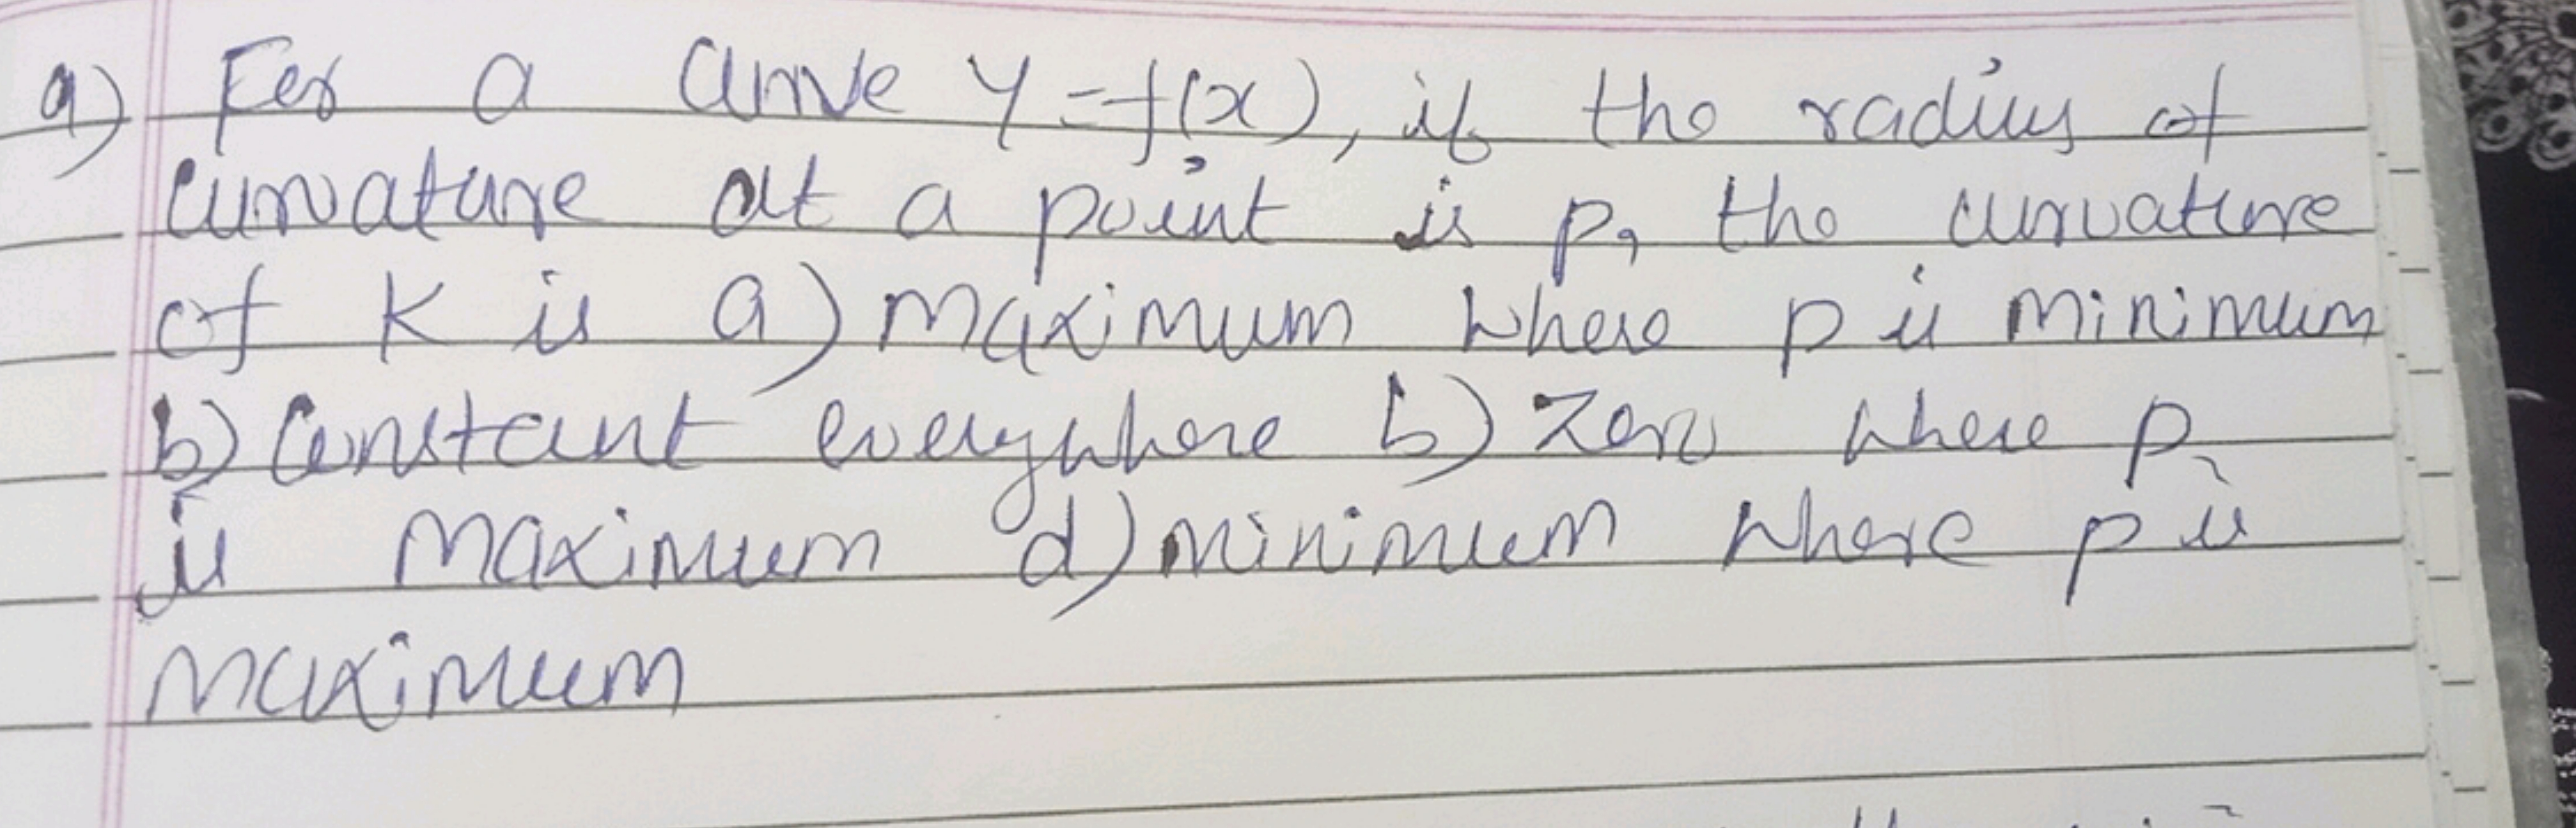 a) For a curve y=f(x), if the radius of
curvature at a point is p, the curvature
of K is a) maximum where p is minimum
b) constant everywhere b) zero where p
is maximum d) minimum where p is
maximum